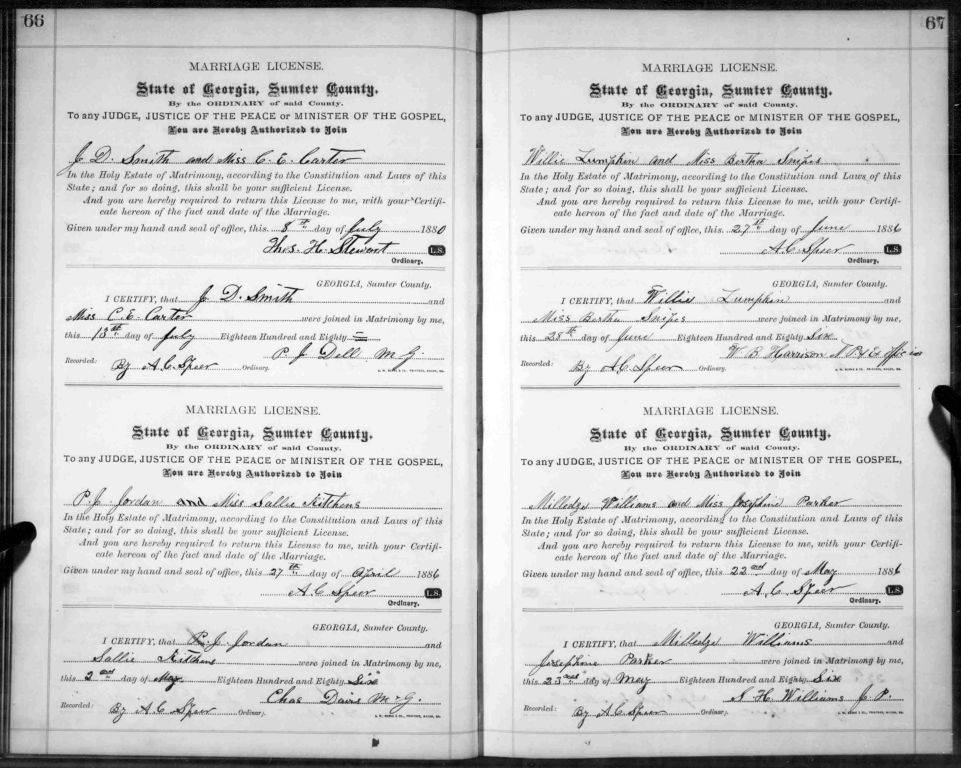 66
MARRIAGE LICENSE.
State of Georgia, Sumter County.
By the ORDINARY of said County.
To any JUDGE, JUSTICE OF THE PEACE or MINISTER OF THE GOSPEL,
You are Hereby Authorized to Join
J D. Smith and Miss C. E. Carter
In the Holy Estate of Matrimony, according to the Constitution and Laws of this
State; and for so doing, this shall be your sufficient License.
And you are hereby required to return this License to me, with your Certifi-
cate hereon of the fact and date of the Marriage.
Given under my hand and seal of office, this 8th day of July 1880
Thos. H. Stewart L.S.
Ordinary.
GEORGIA, Sumter County.
I CERTIFY, that J D. Smith and
Miss C. E. Carter were joined in Matrimony by me,
this 13th day of July Eighteen Hundred and Eighty
P. J Dell M G.
Recorded: By A. C. Speer Ordinary.
MARRIAGE LICENSE.
State of Georgia, Sumter County.
By the ORDINARY of said County.
To any JUDGE, JUSTICE OF THE PEACE or MINISTER OF THE GOSPEL,
You are Hereby Authorized to Join
P. J. Jordan and Miss Sallie Kitchens
In the Holy Estate of Matrimony, according to the Constitution and Laws of this
State; and for so doing, this shall be your sufficient License.
And you are hereby required to return this License to me, with your Certifi-
cate hereon of the fact and date of the Marriage.
Given under my hand and seal of office, this 27th day of April 1886
A C Speer L.S.
Ordinary.
GEORGIA, Sumter County.
I CERTIFY, that P. J. Jordan and
Sallie Kitchens were joined in Matrimony by me,
this 2nd day of May Eighteen Hundred and Eighty Six
Chas Davis M G
Recorded: By A C Speer Ordinary.
67
MARRIAGE LICENSE.
State of Georgia, Sumter County.
By the ORDINARY of said County.
To any JUDGE, JUSTICE OF THE PEACE or MINISTER OF THE GOSPEL,
You are Hereby Authorized to Join
Willie Lumpkin and Miss Bertha Snipes
In the Holy Estate of Matrimony, according to the Constitution and Laws of this
State; and for so doing, this shall be your sufficient License.
And you are hereby required to return this License to me, with your Certifi-
cate hereon of the fact and date of the Marriage.
Given under my hand and seal of office, this 27th day of June 1886
A. C. Speer L.S.
Ordinary.
GEORGIA, Sumter County.
I CERTIFY, that Willie Lumpkin and
Miss Bertha Snipes were joined in Matrimony by me,
this 28th day of June Eighteen Hundred and Eighty Six
W. B. Harrison N. P. & Ex officio
Recorded: By A C Speer Ordinary.
MARRIAGE LICENSE.
State of Georgia, Sumter County.
By the ORDINARY of said County.
To any JUDGE, JUSTICE OF THE PEACE or MINISTER OF THE GOSPEL,
You are Hereby Authorized to Join
Milledge Williams and Miss Josephine Parker
In the Holy Estate of Matrimony, according to the Constitution and Laws of this
State; and for so doing, this shall be your sufficient License.
And you are hereby required to return this License to me, with your Certifi-
cate hereon of the fact and date of the Marriage.
Given under my hand and seal of office, this 22nd day of May 1886
A. C. Speer L.S.
Ordinary.
GEORGIA, Sumter County.
I CERTIFY, that Milledge Williams and
Josephine Parker were joined in Matrimony by me,
this day of May Eighteen Hundred and Eighty Six
S. H. Williams J. P.
Recorded: By A C Speer Ordinary.